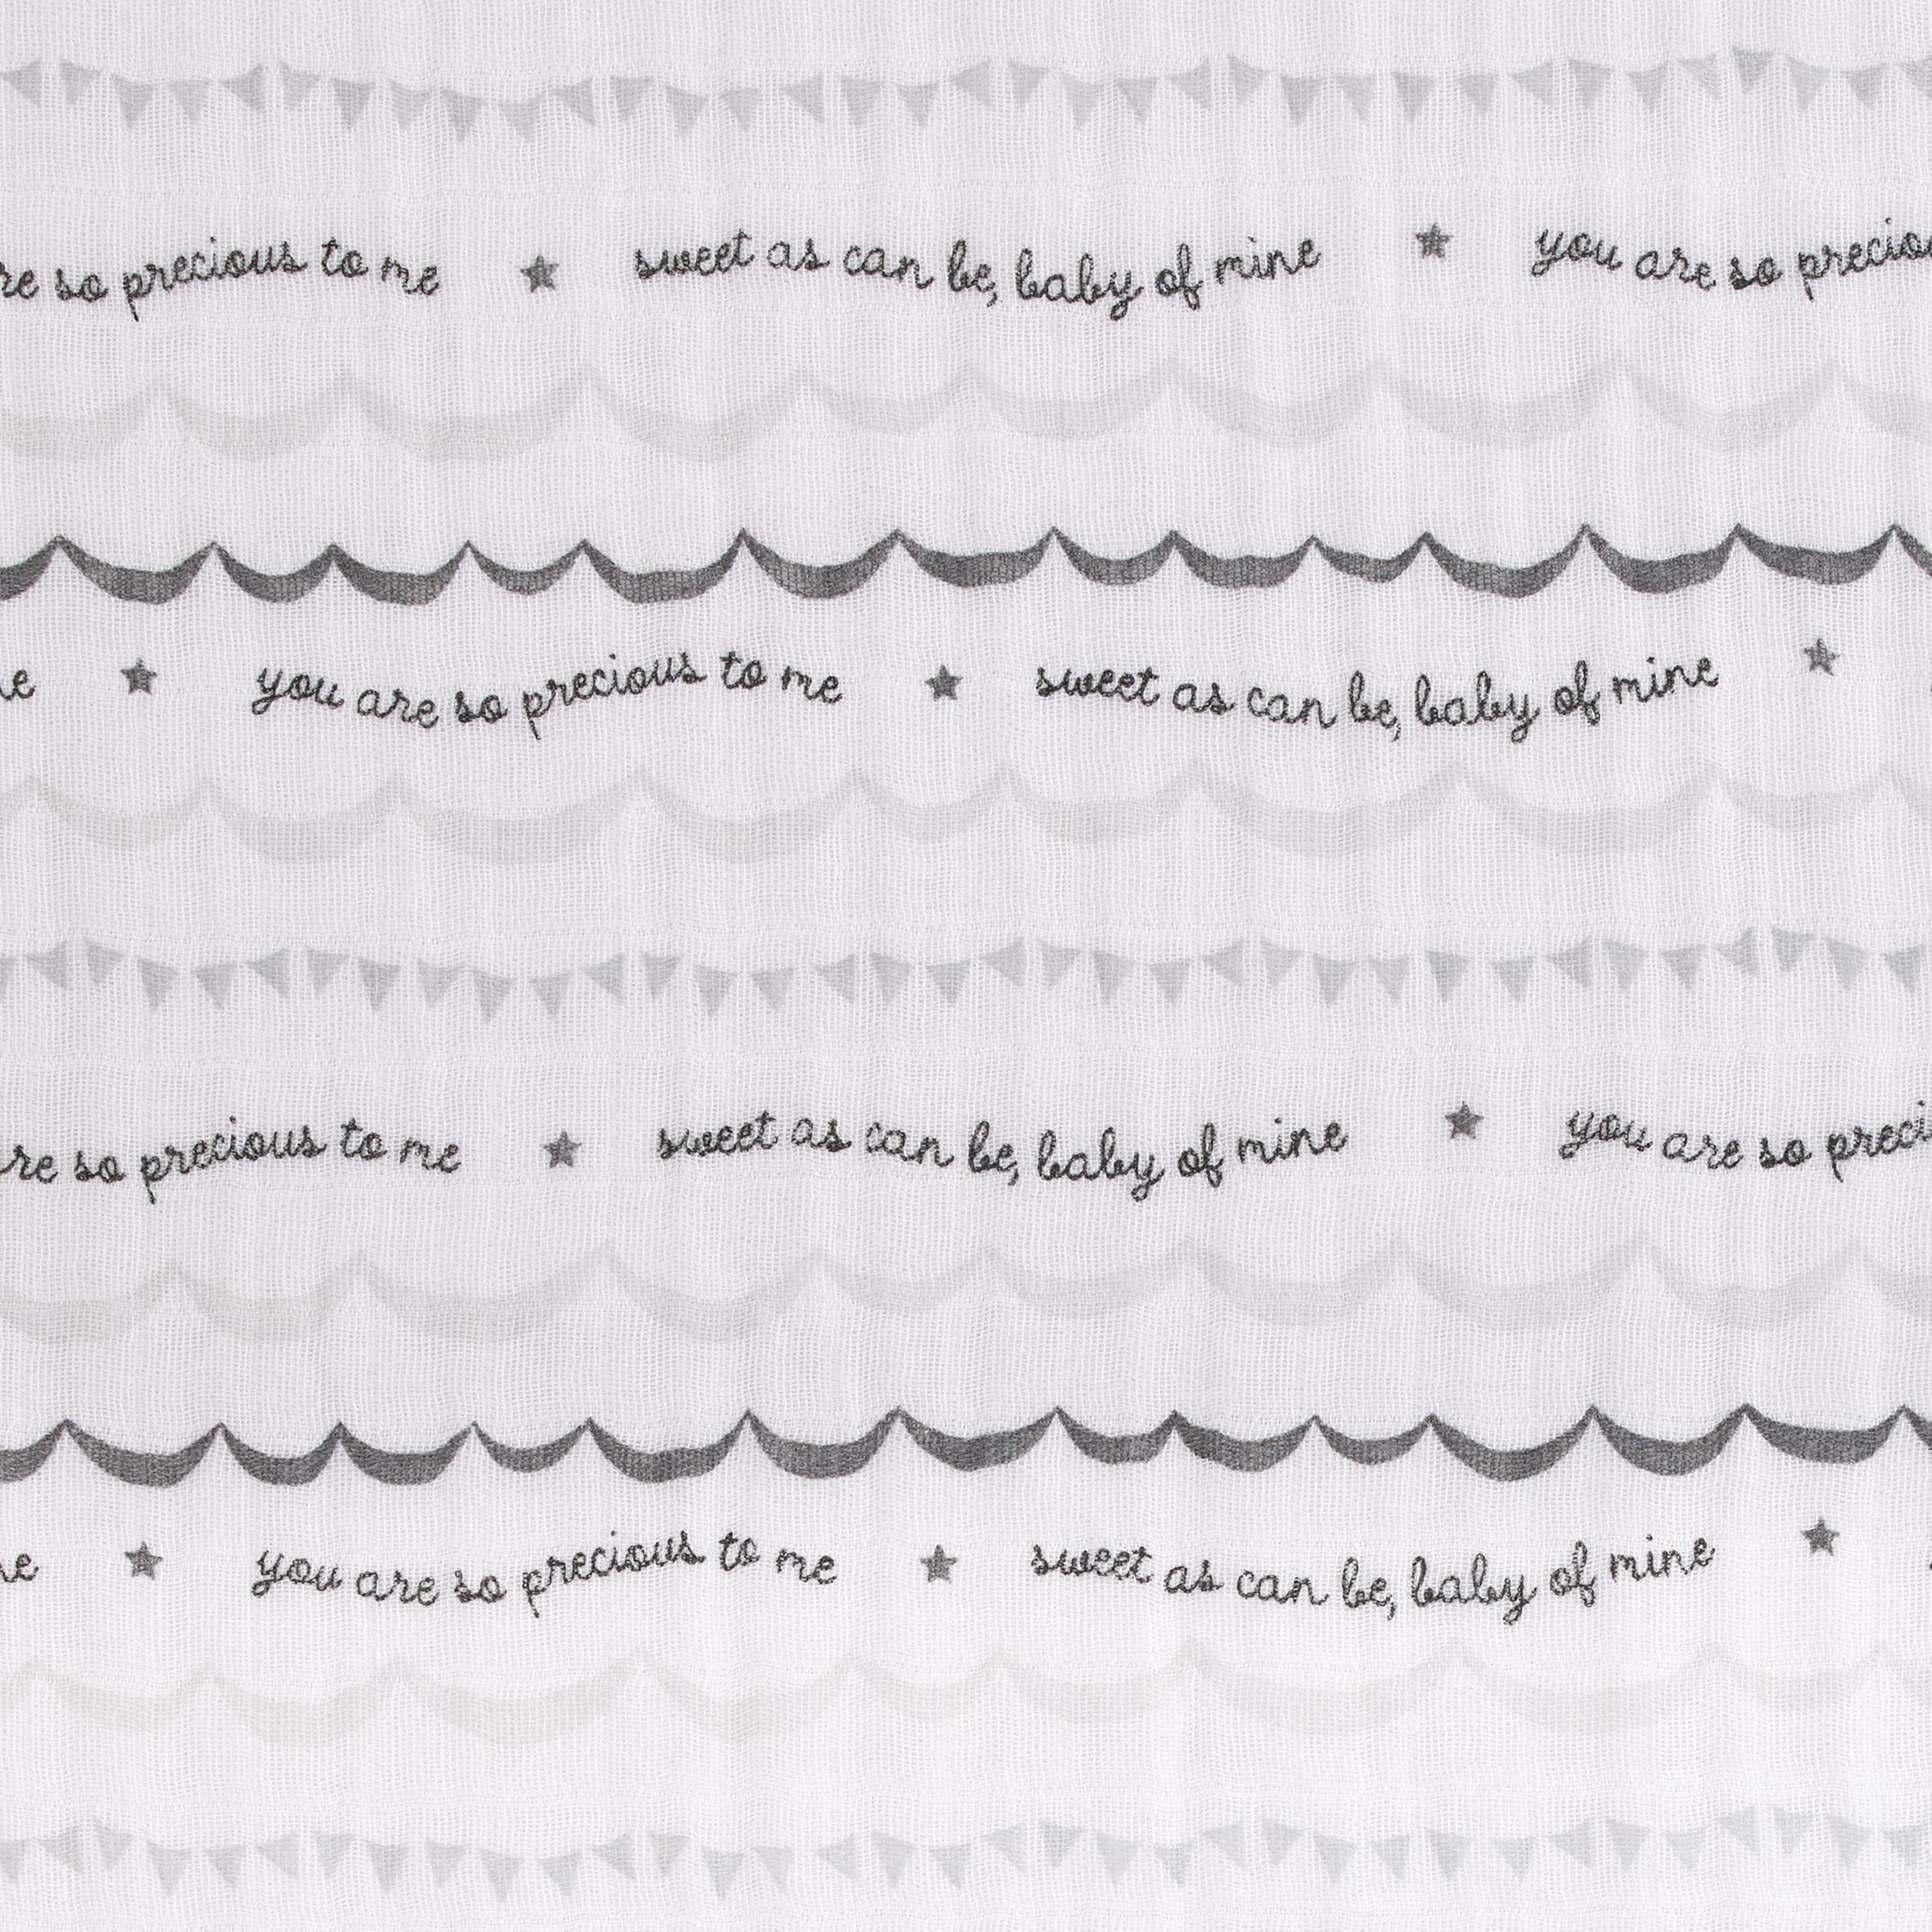 re so precious to me sweet as can be, baby of mine you are so precio
e you are so precious to me sweet as can be, baby of mine
re so precious to me sweet as can be, baby of mine you are so preci
e you are so precious to me sweet as can be, baby of mine